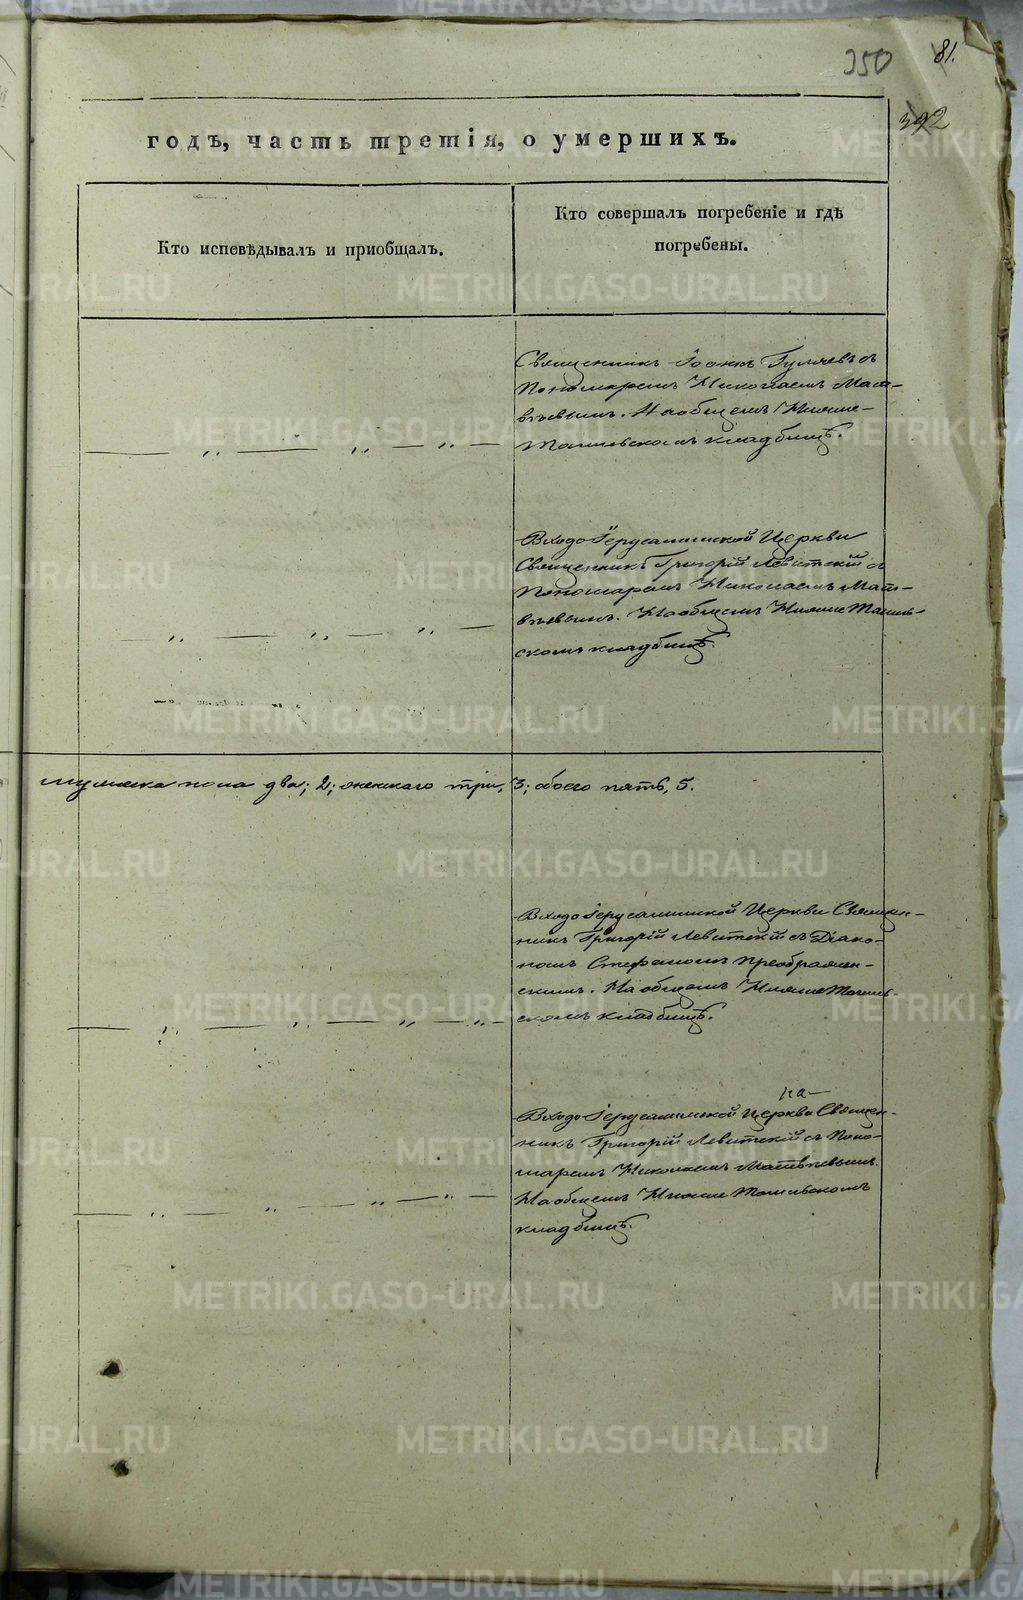 350
81.
392
годъ, часть третія, о умершихъ.
Кто исповѣдывалъ и приобщалъ.
Кто совершалъ погребеніе и гдѣ
погребены.
Священникъ Іоаннъ Гуляевъ съ
Пономаремъ Николаемъ Мат-
вѣевымъ. На общемъ Нижне-
Тагильскомъ кладбищѣ.
Входо Іерусалимской Церкви
Священникъ Григорій Левитскій съ
Пономаремъ Николаемъ Мат-
вѣевымъ. На общемъ Нижне Тагиль-
скомъ кладбищѣ.
мужеска пола два; 2; женскаго три, 3; обоего пять, 5.
Входо Іерусалимской Церкви Священ-
никъ Григорій Левитскій съ Діако-
номъ Стефаномъ Преображен-
скимъ. На общемъ Нижне Тагиль-
скомъ кладбищѣ.
на
Входо Іерусалимской Церкви Священ-
никъ Григорій Левитскій съ Поно-
маремъ Николаемъ Матвѣевымъ.
На общемъ Нижне Тагильскомъ
кладбищѣ.
METRIKI.GASO-URAL.RU